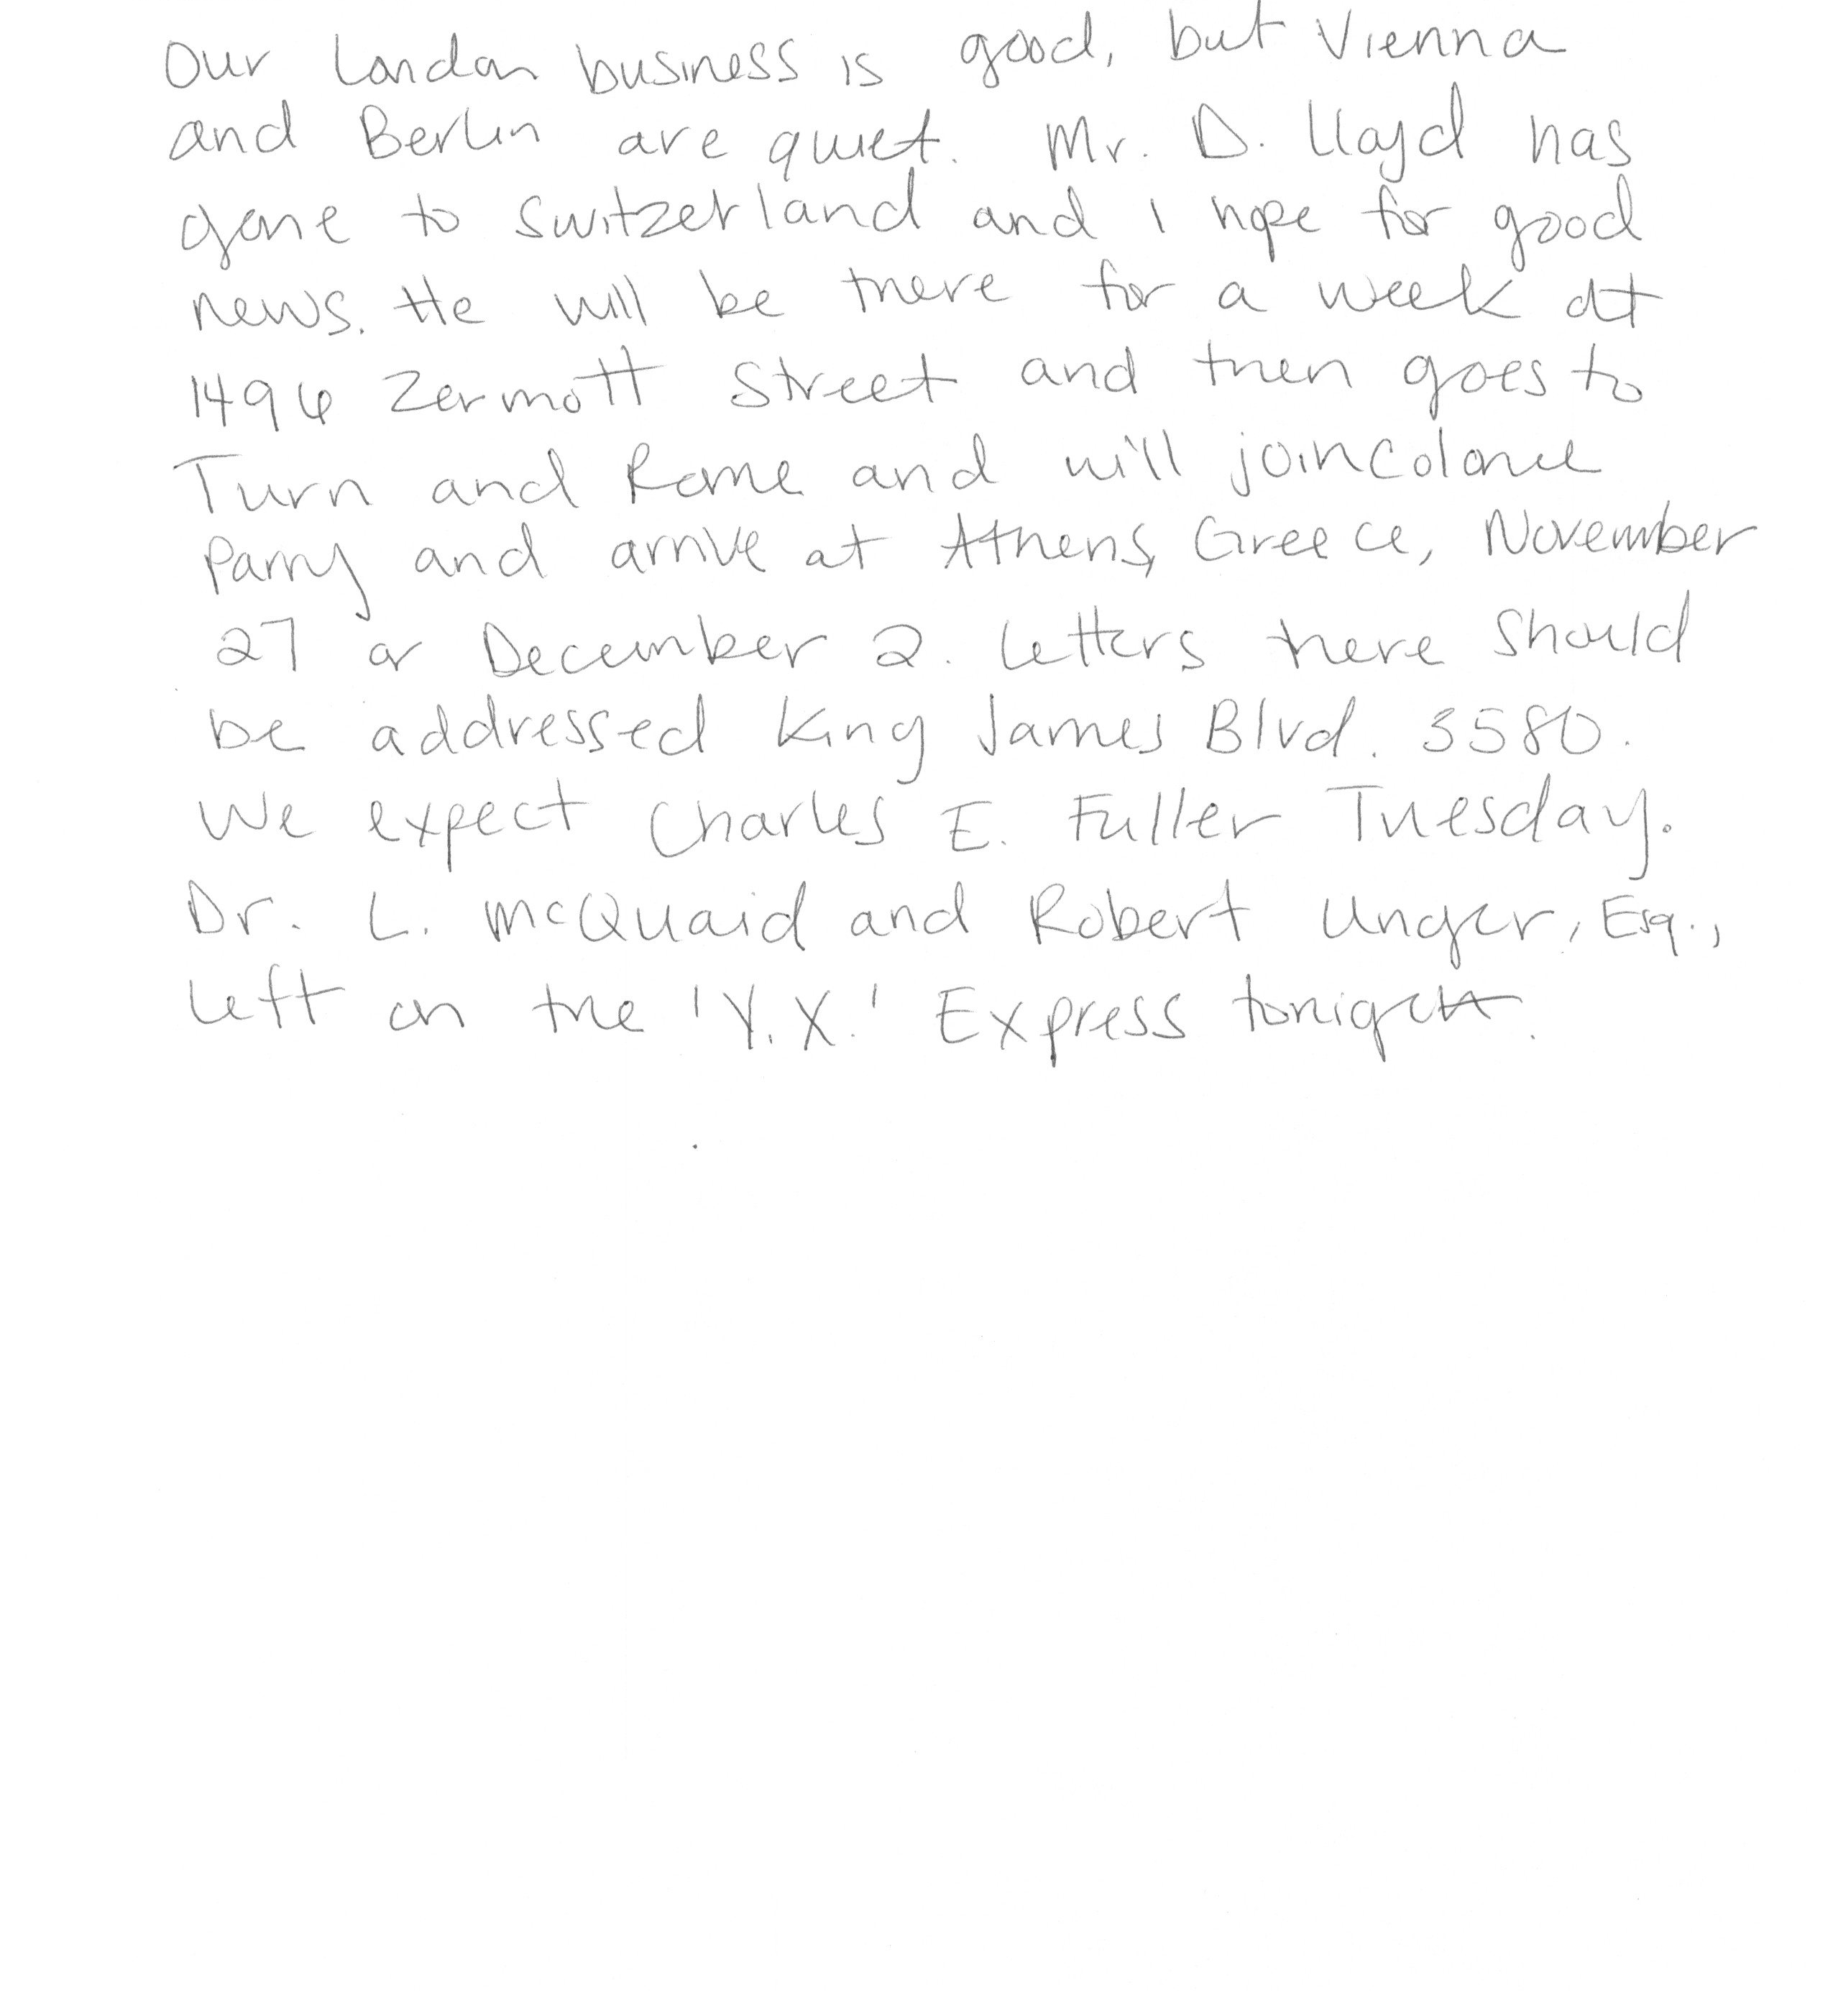 Our London business is good, but Vienna
and Berlin are quiet. Mr. D. Lloyd has
gone to Switzerland and I hope for good
news. He will be there for a week at
1496 Zermott Street and then goes to
Turn and Rome and will join Colonel
Parry and arrive at Athens, Greece, November
27 or December 2. Letters there should
be addressed King James Blvd. 3580.
We expect Charles E. Fuller Tuesday.
Dr. L. McQuaid and Robert Unger, Esq.,
left on the 'Y.X.' Express tonight.